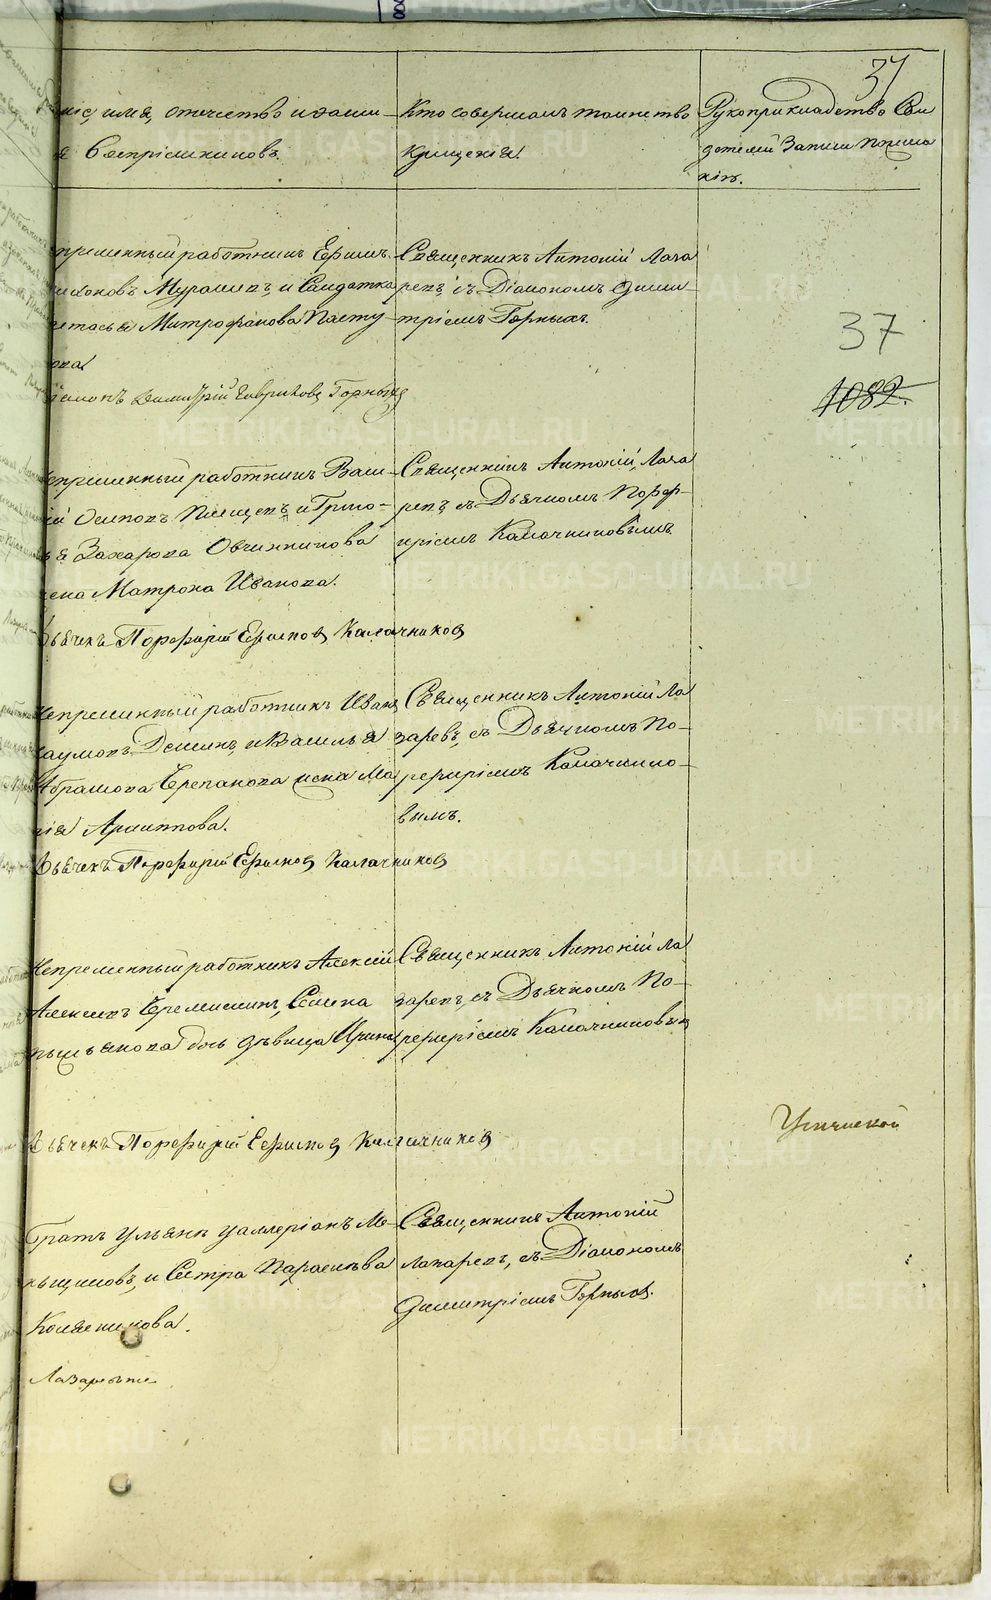 37
имя, отечество и фами-
я Воспрiемниковъ.
Кто совершалъ таинство
крещенiя.
Рукоприкладство Сви
детелей записи по жела
нiю.
работникъ Ефимъ
Мурашевъ, и Солдатка
Митрофанова Пасту
хова
Димитрiй Гавриловъ Горныхъ
Священникъ Антонiй Лаза
ревъ, съ Дiакономъ Дими-
трiемъ Горныхъ.
37
1082.
работникъ Васи-
Осиповъ и Григо-
Захарова Овчинникова
жена Матрона Иванова.
Дьячекъ Порфирiй Ефимовъ Калачниковъ
Священникъ Антонiй Лаза
ревъ, съ Дьячкомъ Порф-
ирiемъ Калачниковымъ
Непременный работникъ Иванъ
Наумовъ Деминъ, и Василья
Абрамова Черепанова жена Ма
рiя Архиппова.
Дьячекъ Порфирiй Ефимовъ Калачниковъ
Священникъ Антонiй Ла
заревъ, съ Дьячкомъ По-
рфирiемъ Калачнико-
вымъ.
Непременный работникъ Алексiй
Алексеевъ Семена
дочь девица Ирина
Дьячекъ Порфирiй Ефимовъ Калачниковъ
Священникъ Антонiй Ла
заревъ, съ Дьячкомъ По-
рфирiемъ Калачниковымъ
Братъ Ульянъ Валерiанъ Ме-
льщиковъ, и Сестра Параскева
Колясникова.
Священникъ Антонiй
Лазаревъ, съ Дiакономъ
Димитрiемъ Горныхъ.
METRIKI.GASO-URAL.RU